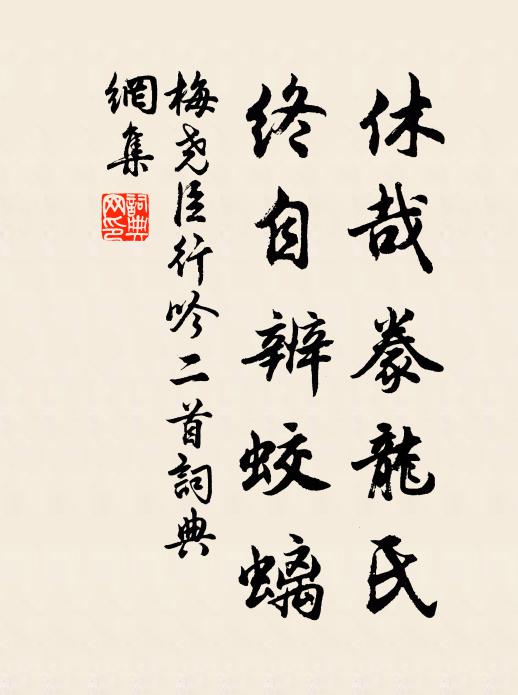 休哉豢龍氏
終自辨蛟螭
梅尧臣行吟二首詞典
網集
詞典
网印